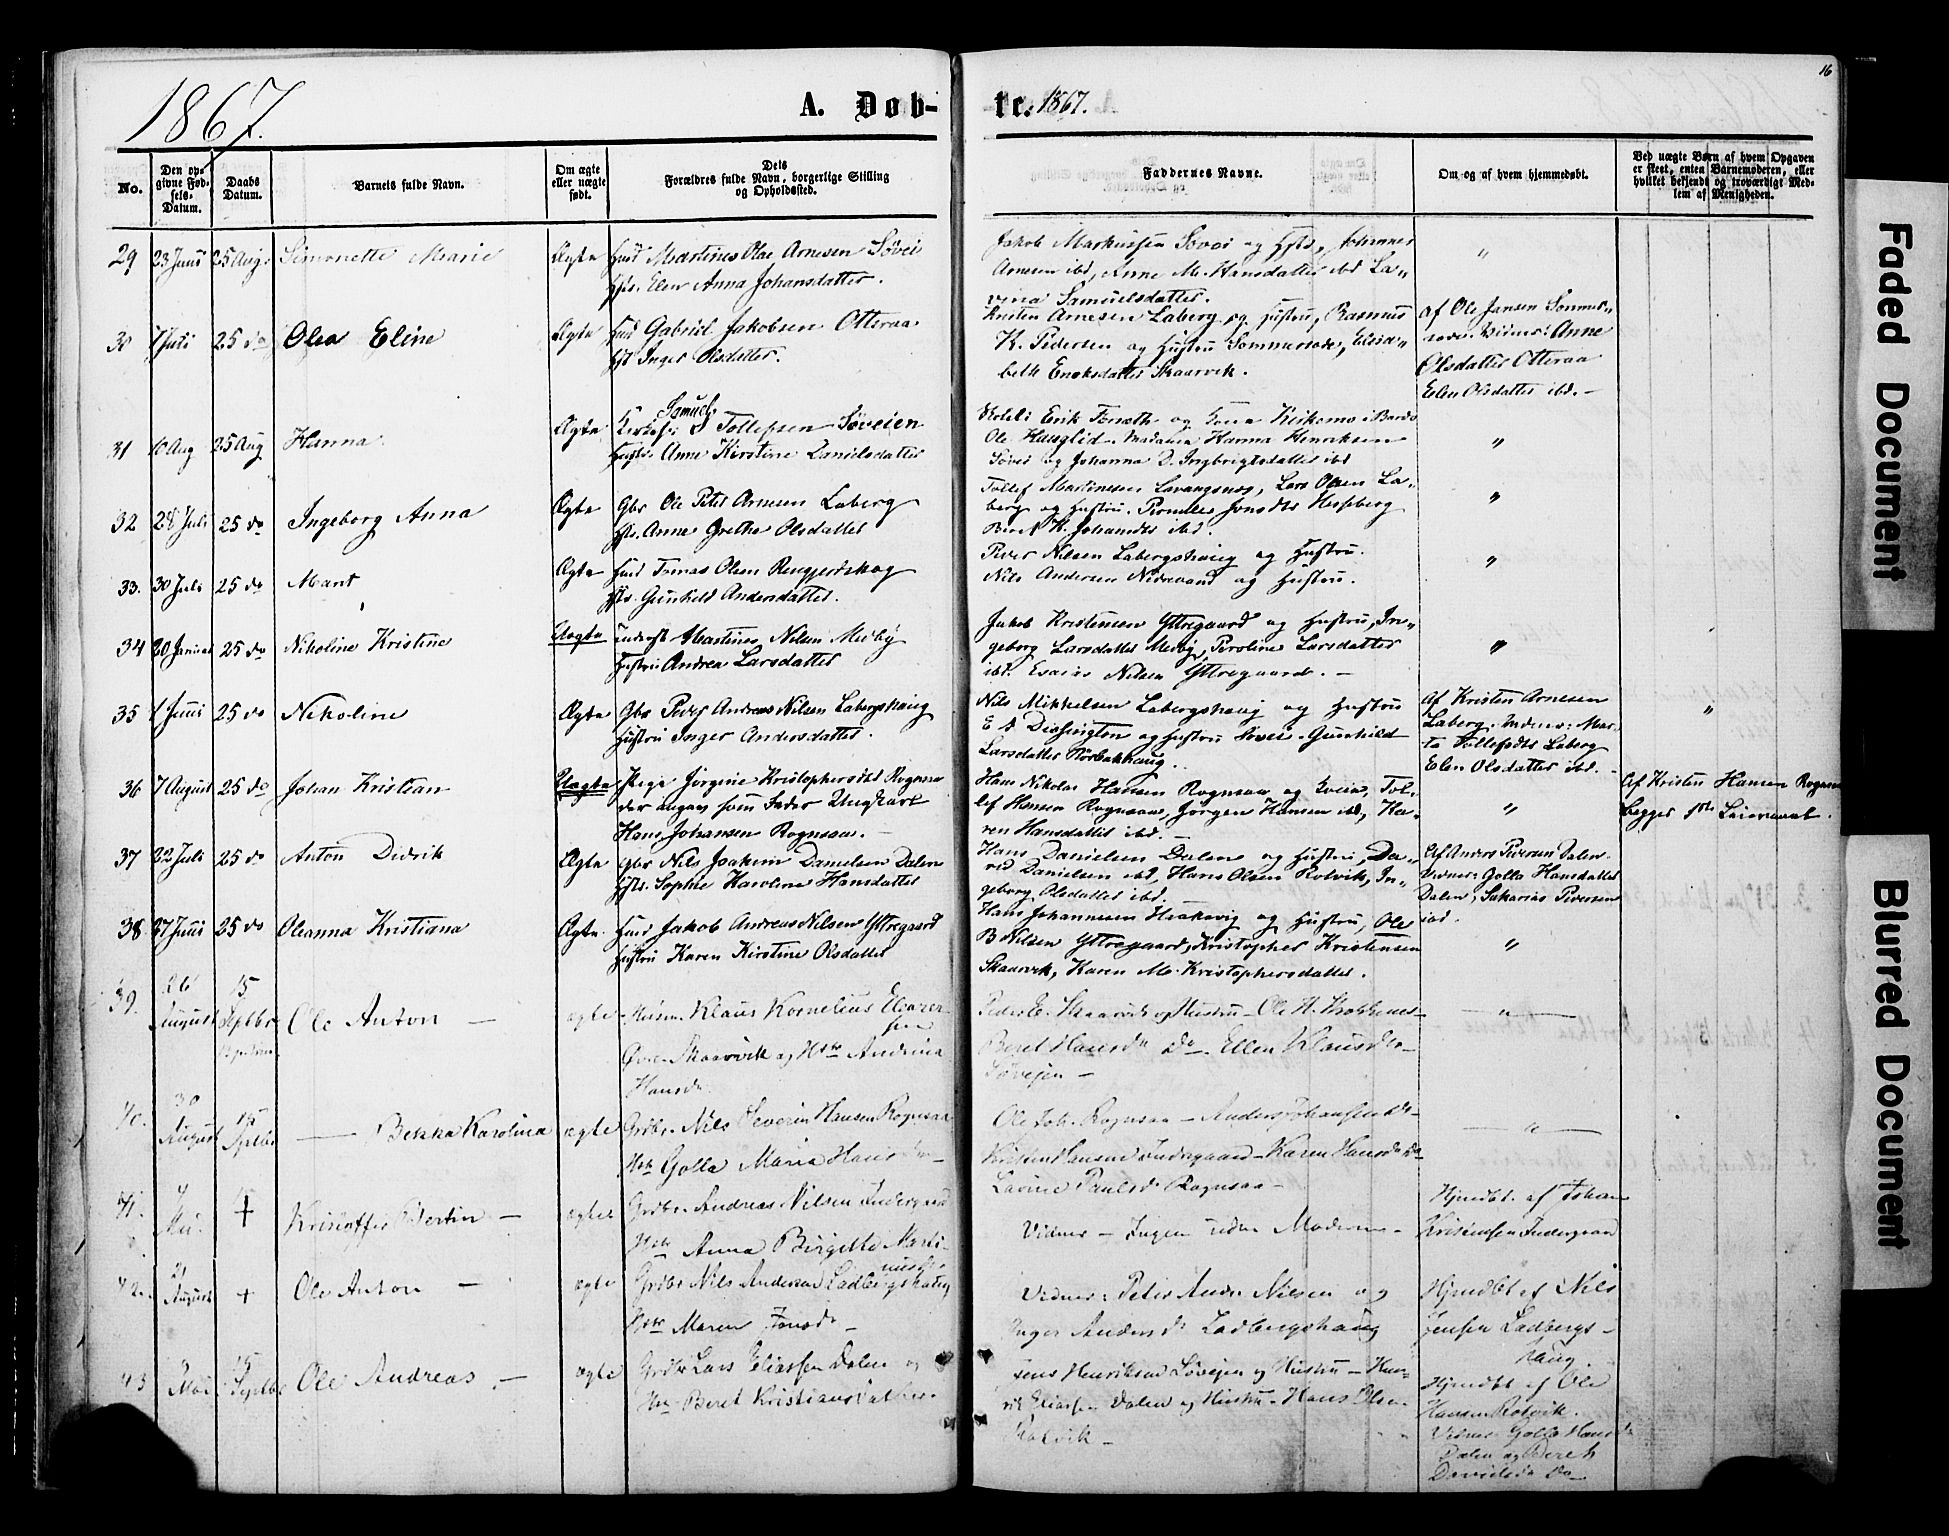 1867.
A. Døb-
te. 1867.
16
No.
Den opgivne Fødsels-Datum.
Daabs Datum.
Barnets fulde Navn.
Om ægte eller uægte født.
Dets Forældres fulde Navn, borgerlige Stilling og Opholdssted.
Faddernes Navne.
Om og af hvem hjemmedøbt.
Ved uægte Børn af hvem Opgaven er skeet, enten Barnemoderen, eller hvilket bekjendt og troværdigt Medlem af Menigheden.
29 23 Juni 25 Aug. Simonette Marie Ægte Husm Martines Olae Arnesen Søvei
Hst. Elen Anna Johansdatter.
Jakob Markussen Søvei og Hst., Johannes
Arnesen ibd, Anne M. Hansdatter ibd La-
vina Samuelsdatter.
30 7 Juli 25 do Olea Eline Ægte Husm Gabriel Jakobsen Otteraa
Hst Inger Olsdatter.
Kristen Arnesen Laberg og Hustru, Rasmus
K. Pedersen og Hustru Sommersæde, Elisa-
beth Enoksdatter Skaarvik.
af Ole Jansen Sommer-
sæde. Vidner: Anne
Olsdatter Otteraa
Elen Olsdatter ibd. -
31 10 Aug 25 Aug Hanna Ægte Samuel Tollefsen Søveien
Hustru Anne Kirstine Danielsdatter
Erik Tonseth og Kirkemo i Bardo
Ole Hauglid. Madama Hanna Henriksen
Søvei og Johanna D. Ingbrigtsdatter ibd
32 28 Juli 25 do Ingeborg Anna Ægte Gbr Ole Peter Arnesen Laberg
Hst. Anne Grethe Olsdatter
Tollef Martinesen Lavangsnæs, Lars Olsen La-
berg og Hustru. Pernille Jonsdtr Hesseberg
Berit K. Johansdtr ibd.
33. 30 Juli 25 do Marit Ægte Husm Tomas Olsen Rengjerdskog
Hst. Gunhild Andersdatter.
Peder Nilsen Labergshaug og Hustru.
Nils Andersen Nedrevand og Hustru.
34 20 Januar 25 do Nikoline Kristine Uægte Inderst Martines Nilsen Medby
Hustru Andrea Larsdatter
Jakob Kristensen Yttregaard og Hustru, In-
geborg Larsdatter Medby, Peroline Larsdatter
ibd. Esaias Nilsen Yttregaard. -
35 1 Juni 25 do Nikoline Ægte Gbr Peder Andreas Nilsen Labergshaug
Hustru Inger Andersdatter.
Nils Mikkelsen Labergshaug og Hustru
E A Dissington og Hustru Søvei. Gunhild
Larsdatter Størbakhaug.
Af Kristen Arnesen
Laberg. Vidner: Mar-
ta Tollefsdtr Laberg
Elen Olsdatter ibd. -
36 7 August 25 do Johan Kristian Uægte Pige Jørgine Kristophersdtr Rognsaa
der angav som Fader Ungkarl
Hans Johansen Rognsaa. -
Hans Nikolai Hansen Rognsaa og Kvinde, Tol-
lef Hansen Rognsaa, Jørgen Hansen ibd, Ka-
ren Hansdatter ibd. -
Af Kristen Hansen Rognsaa
begges 1ste Leiermaal.
37 22 Juli 25 do Anton Didrik Ægte Gbr Nils Joakim Danielsen Dalen
Hst. Sophie Karoline Hansdatter
Hans Danielsen Dalen og Hustru, Da-
vid Danielsen ibd, Hans Olsen Rotvik, In-
geborg Olsdatter ibd.
Af Anders Pedersen Dalen.
Vidner: Golla Hansdatter
Dalen, Sakarias Pedersen
ibd.
38 27 Juni 25 do Oleanna Kristiana Ægte. Husm Jakob Andreas Nilsen Yttregaard
Hustru Karen Kirstine Olsdatter
Hans Johannesen Haakavig og Hustru, Ole
B Nilsen Yttregaard, Kristopher Kristensen
Skaarvik, Karen M. Kristophersdatter.
39. 26 August 15 Septbr Ole Anton - ægte Husm. Klaus Kornelius Eleazer-
sen
Øvre Skaarvik og Hstr Andrina
Hansd.
Peder E. Skaarvik og Hustru - Ole H.
Beret Hansdr Do - Ellen Klausdr -
Søvejen -
40. 30 August 15 Septbr - Bekka Karolina ægte Grdbr. Nils Severin Hansen Rognsaa
Hstr Golla Maria Hansd -
Ole Joh. Rognsaa - Anders Johansen do -
Kristen Hansen Indregaard - Karen Hansdr Do
Lavine Paulsdr Rognsaa -
41. 4 + Kristoffer Bertin - ægte Grdbr. Andreas Nilsen Indergaard
Hstr Anna Birgitte Marti-
nusdr
Vidner - Ingen uden Moderen -
Hjmdbt. af Johan
Kristensen Indergaard
42. 21 August + Ole Anton - ægte Grdbr Nils Andersen Ladbergshaug
Hstr Maren Jonsdr -
Vidner: Peter Andr. Nilsen og
Inger Andersdr Ladbergshaug
Hjmdbt af Nils
Jensen Ladbergs-
haug.
43 Mai 15 Septbr Ole Andreas. - ægte Grdbr Lars Eliassen Dalen og
Hstr Beret Kristiansdatter.
Jens Henriksen Søvejen og Hustru - Hen-
rik Eliassen Dalen og Hustru - Hans Olsen
Rotvik -
Hjmdbt af Ole
Hansen Rotvik.
Vidner Golla Hansdr
Dalen og Bereth
Danielsdr Do -
Faded Document
Blurred Document